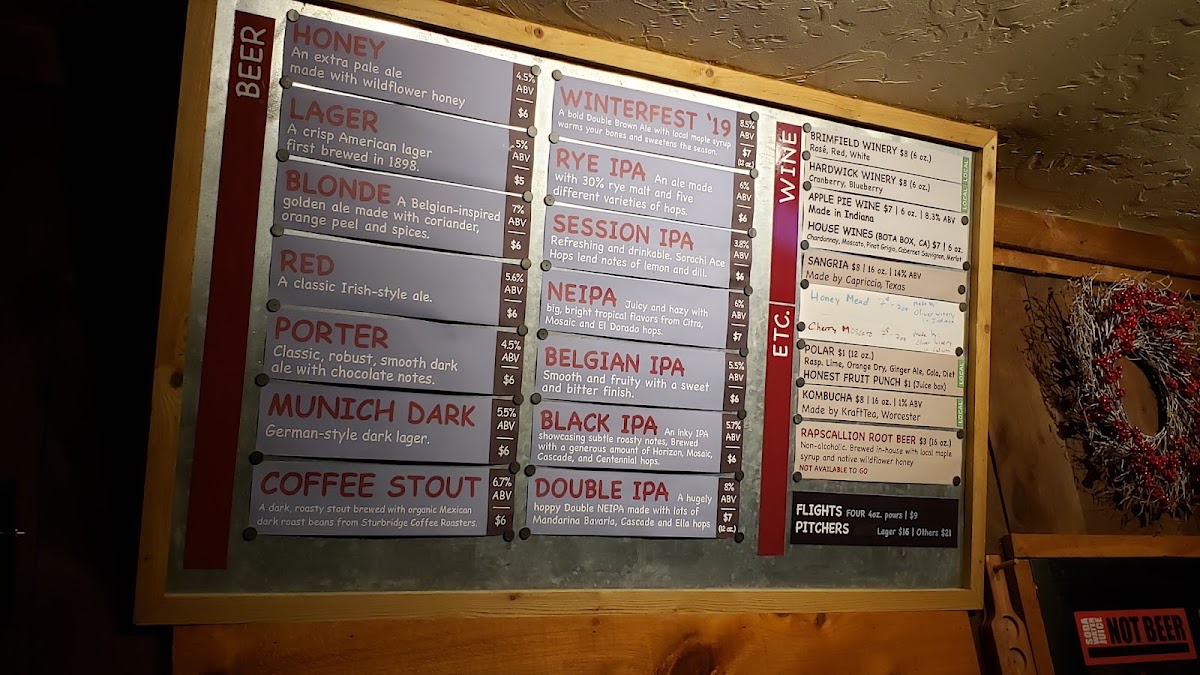 BEER
HONEY
An extra pale ale
made with wildflower honey
4.5%
ABV
$6
LAGER
A crisp American lager
first brewed in 1898.
5%
ABV
$5
BLONDE A Belgian-inspired
golden ale made with coriander,
orange peel and spices.
7%
ABV
$6
RED
A classic Irish-style ale.
5.6%
ABV
$6
PORTER
Classic, robust, smooth dark
ale with chocolate notes.
4.5%
ABV
$6
MUNICH DARK
German-style dark lager.
5.5%
ABV
$6
COFFEE STOUT
A dark, roasty stout brewed with organic Mexican
dark roast beans from Sturbridge Coffee Roasters.
6.7%
ABV
$6
WINTERFEST '19
A bold Double Brown Ale with local maple syrup
warms your bones and sweetens the season.
8.5%
ABV
$7
(12 oz.)
RYE IPA An ale made
with 30% rye malt and five
different varieties of hops.
6%
ABV
$6
SESSION IPA
Refreshing and drinkable. Sorachi Ace
Hops lend notes of lemon and dill.
3.8%
ABV
$6
NEIPA Juicy and hazy with
big, bright tropical flavors from Citra,
Mosaic and El Dorado hops.
6%
ABV
$7
BELGIAN IPA
Smooth and fruity with a sweet
and bitter finish.
5.5%
ABV
$6
BLACK IPA An inky IPA
showcasing subtle roasty notes, Brewed
with a generous amount of Horizon, Mosaic,
Cascade, and Centennial hops.
5.7%
ABV
$6
DOUBLE IPA A hugely
hoppy Double NEIPA made with lots of
Mandarina Bavaria, Cascade and Ella hops
8%
ABV
$7
(12 oz.)
WINE
BRIMFIELD WINERY $8 (6 oz.)
Rosé, Red, White
LOCAL
HARDWICK WINERY $8 (6 oz.)
Cranberry, Blueberry
LOCAL
APPLE PIE WINE $7 | 6 oz. | 8.3% ABV
Made in Indiana
HOUSE WINES (BOTA BOX, CA) $7 | 6 oz.
Chardonnay, Moscato, Pinot Grigio, Cabernet Sauvignon, Merlot
SANGRIA $8 | 16 oz. | 14% ABV
Made by Capriccio, Texas
Honey Mead
made by
Oliver Winery
in Indiana
Cherry Moscato
ETC.
POLAR $1 (12 oz.)
Rasp. Lime, Orange Dry, Ginger Ale, Cola, Diet
HONEST FRUIT PUNCH $1 (Juice box)
LOCAL
KOMBUCHA $8 | 16 oz. | 1% ABV
Made by KraftTea, Worcester
LOCAL
RAPSCALLION ROOT BEER $3 (16 oz.)
Non-alcoholic. Brewed in-house with local maple
syrup and native wildflower honey
NOT AVAILABLE TO GO
FLIGHTS FOUR 4oz. pours | $9
PITCHERS Lager $16 | Others $21
SODA
WATER
JUICE
NOT BEER